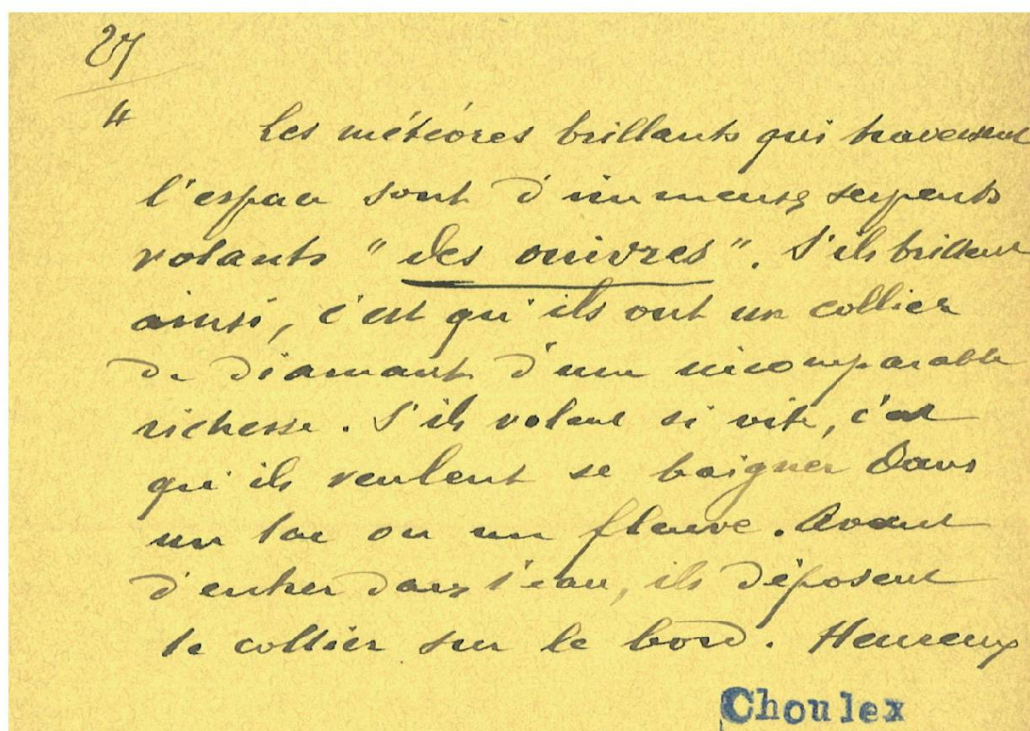 27
4 Les météores brillants qui traversent
l'espace sont d'immenses serpents
volants "des ouivres". S'ils brillent
ainsi, c'est qu'ils ont un collier
de diamants d'une incomparable
richesse. S'ils volent si vite, c'est
qu'ils veulent se baigner dans
un lac ou un fleuve. Avant
d'entrer dans l'eau, ils déposent
le collier sur le bord. Heureux
Choulex